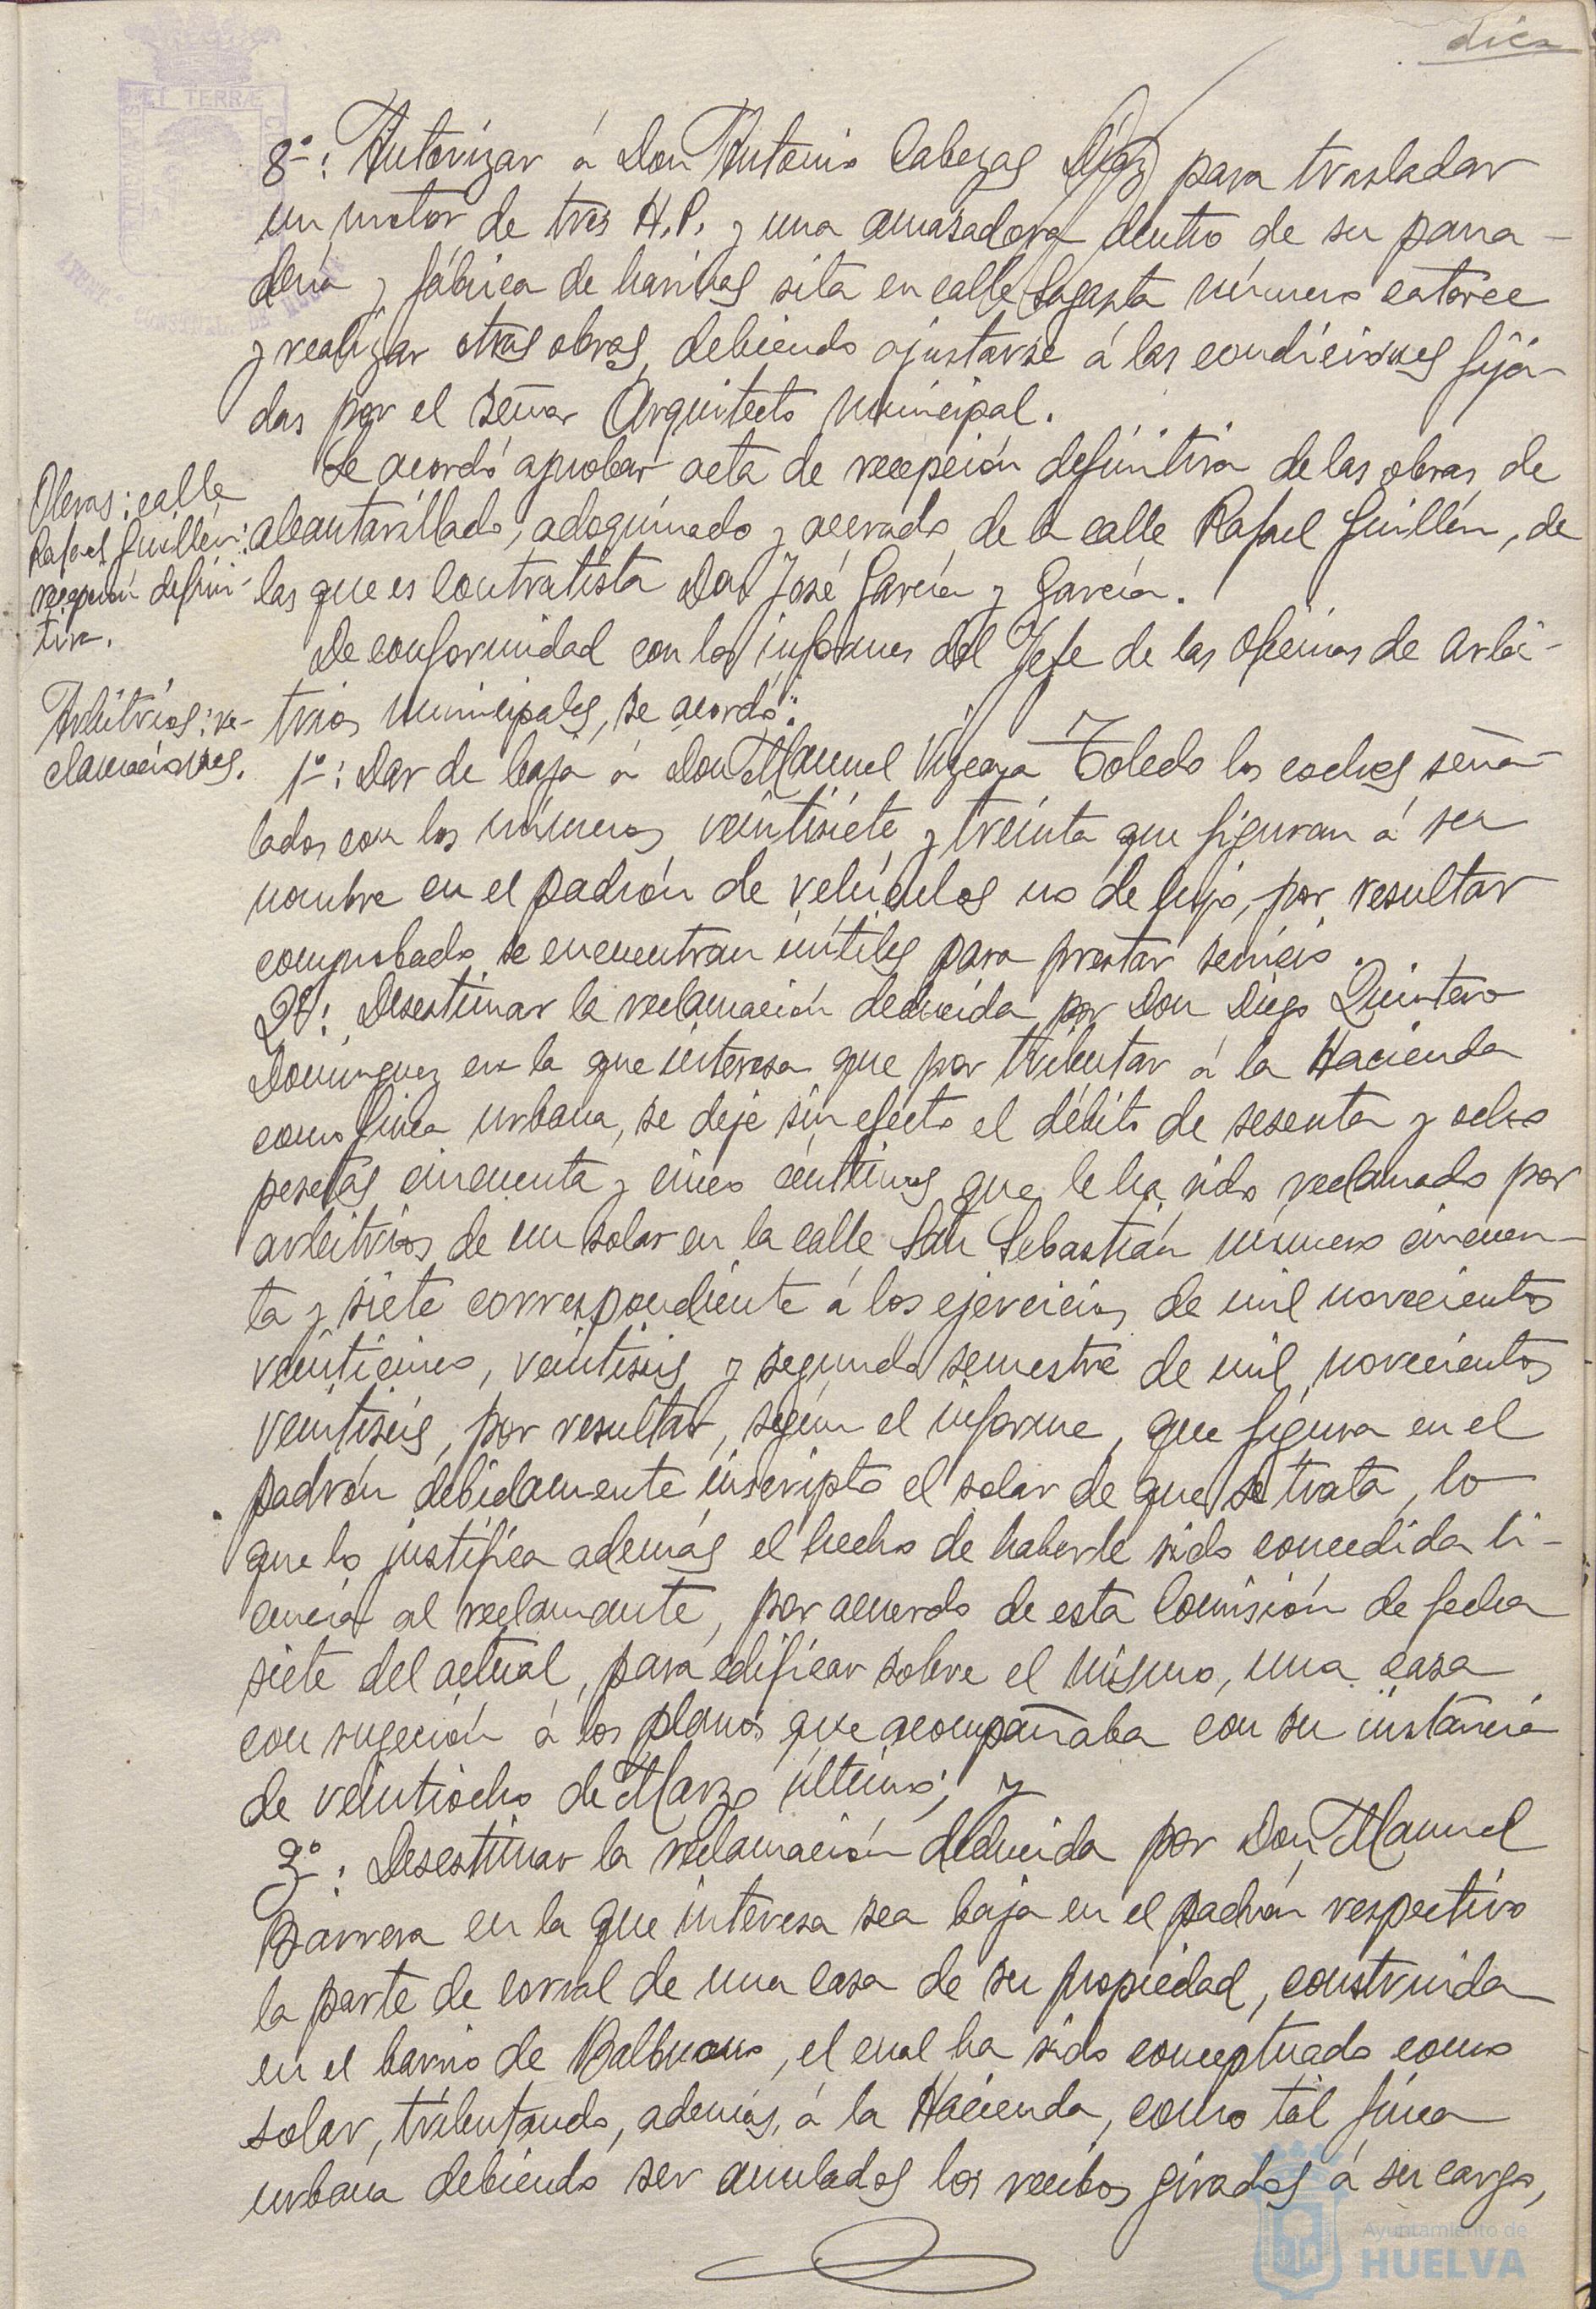 diez
8º: Autorizar á Don Antonio Cabezas Díaz para trasladar
un motor de tres H.P. y una amasadora dentro de su pana-
dería y fábrica de harinas sita en calle Sagasta número catorce
y realizar otras obras, debiendo ajustarse á las condiciones fija-
das por el señor Arquitecto Municipal.
Se acordó aprobar acta de recepción definitiva de las obras de
Obras: calle
Rafael Guillén:
recepción defini-
tiva.
alcantarillado, adoquinado y acerado de la calle Rafael Guillén, de
las que es contratista Don José García y García.
De conformidad con los informes del Jefe de las Oficinas de Arbi-
Arbitrios: re-
clamaciones.
trios Municipales, se acordó:
1º: Dar de baja á Don Manuel Vizcaya Toledo los coches seña-
lados con los números veintisiete y treinta que figuran á su
nombre en el padrón de vehículos no de lujo, por resultar
comprobado se encuentran inútiles para prestar servicio.
2º: Desestimar la reclamación deducida por Don Diego Quintero
Domínguez en la que interesa que por tributar á la Hacienda
como finca urbana, se deje sin efecto el débito de sesenta y ocho
pesetas cincuenta y cinco céntimos que le ha sido reclamado por
arbitrios de un solar en la calle San Sebastián número cincuen-
ta y siete correspondiente á los ejercicios de mil novecientos
veinticinco, veintiseis y segundo semestre de mil novecientos
veintiseis, por resultar, según el informe, que figura en el
padrón debidamente inscripto el solar de que se trata, lo
que lo justifica además el hecho de haberle sido concedida li-
cencia al reclamante, por acuerdo de esta Comisión de fecha
siete del actual, para edificar sobre el mismo, una casa
con sugeción á los planos que acompañaba con su instancia
de veintiocho de Marzo último; y
3º: Desestimar la reclamación deducida por Don Manuel
Barrera en la que interesa sea baja en el padrón respectivo
la parte de corral de una casa de su propiedad, construida
en el barrio de Balbueno, el cual ha sido conceptuado como
solar, tributando, además, á la Hacienda, como tal finca
urbana debiendo ser anulados los recibos girados á su cargo,
Ayuntamiento de
HUELVA